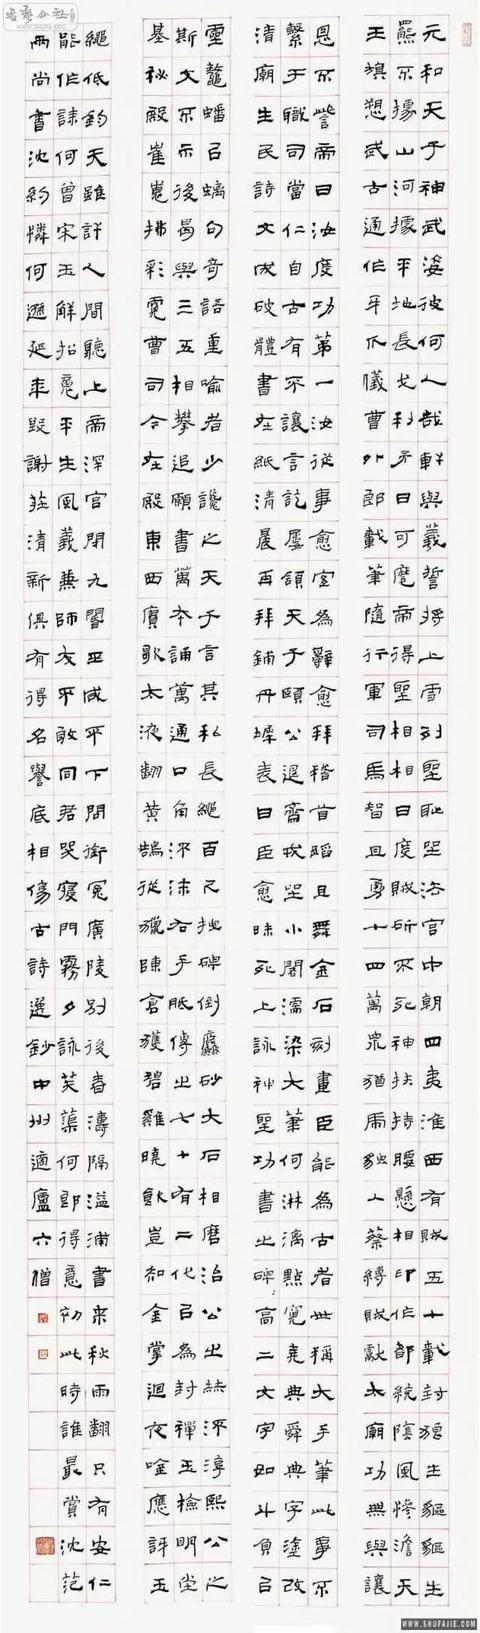 元和天子神武姿彼何人哉軒與羲誓將上雪列聖恥坐法宮中朝四夷淮西有賊五十載封狼生貙貙生
羆不據山河據平地長戈利矛日可麾帝得聖相相曰度賊斫不死神扶持腰懸相印作都統陰風慘澹天
王旗愬武古通作牙爪儀曹外郎載筆隨行軍司馬智且勇十四萬眾猶虎貔入蔡縛賊獻太廟功無與讓
恩不訾帝曰汝度功第一汝從事愈宜為辭愈拜稽首蹈且舞金石刻畫臣能為古者世稱大手筆此事不
繫于職司當仁自古有不讓言訖屢頷天子頤公退齋戒坐小閣濡染大筆何淋漓點竄堯典舜典字塗改
清廟生民詩文成破體書在紙清晨再拜鋪丹墀表曰臣愈昧死上詠神聖功書之碑〻高二丈字如斗負以
靈鼇蟠以螭句奇語重喻者少讒之天子言其私長繩百尺拽碑倒麤砂大石相磨治公之赫流淳熙公之
斯文不示後曷與三五相攀追願書萬本誦萬通口角流沫右手胝傳之七十有二代以為封禪玉檢明堂
基秘殿崔嵬拂彩霓曹司今在殿東西賡歌太液翻黃鵠從獵陳倉獲碧雞曉飲豈知金掌迥夜吟應訝玉
繩低鈞天雖許人間聽上帝深宮閉九閽巫咸不下問銜冤廣陵別後春濤隔湓浦書來秋雨翻只有安仁
能作誄何曾宋玉解招魂平生風義兼師友不敢同君哭寢門霧夕詠芙蕖何郎得意初此時誰最賞沈范
兩尚書沈約憐何遜延年毀謝莊清新俱有得名譽底相傷古詩選鈔中州適廬六僧
WWW.SHUFAJIE.COM